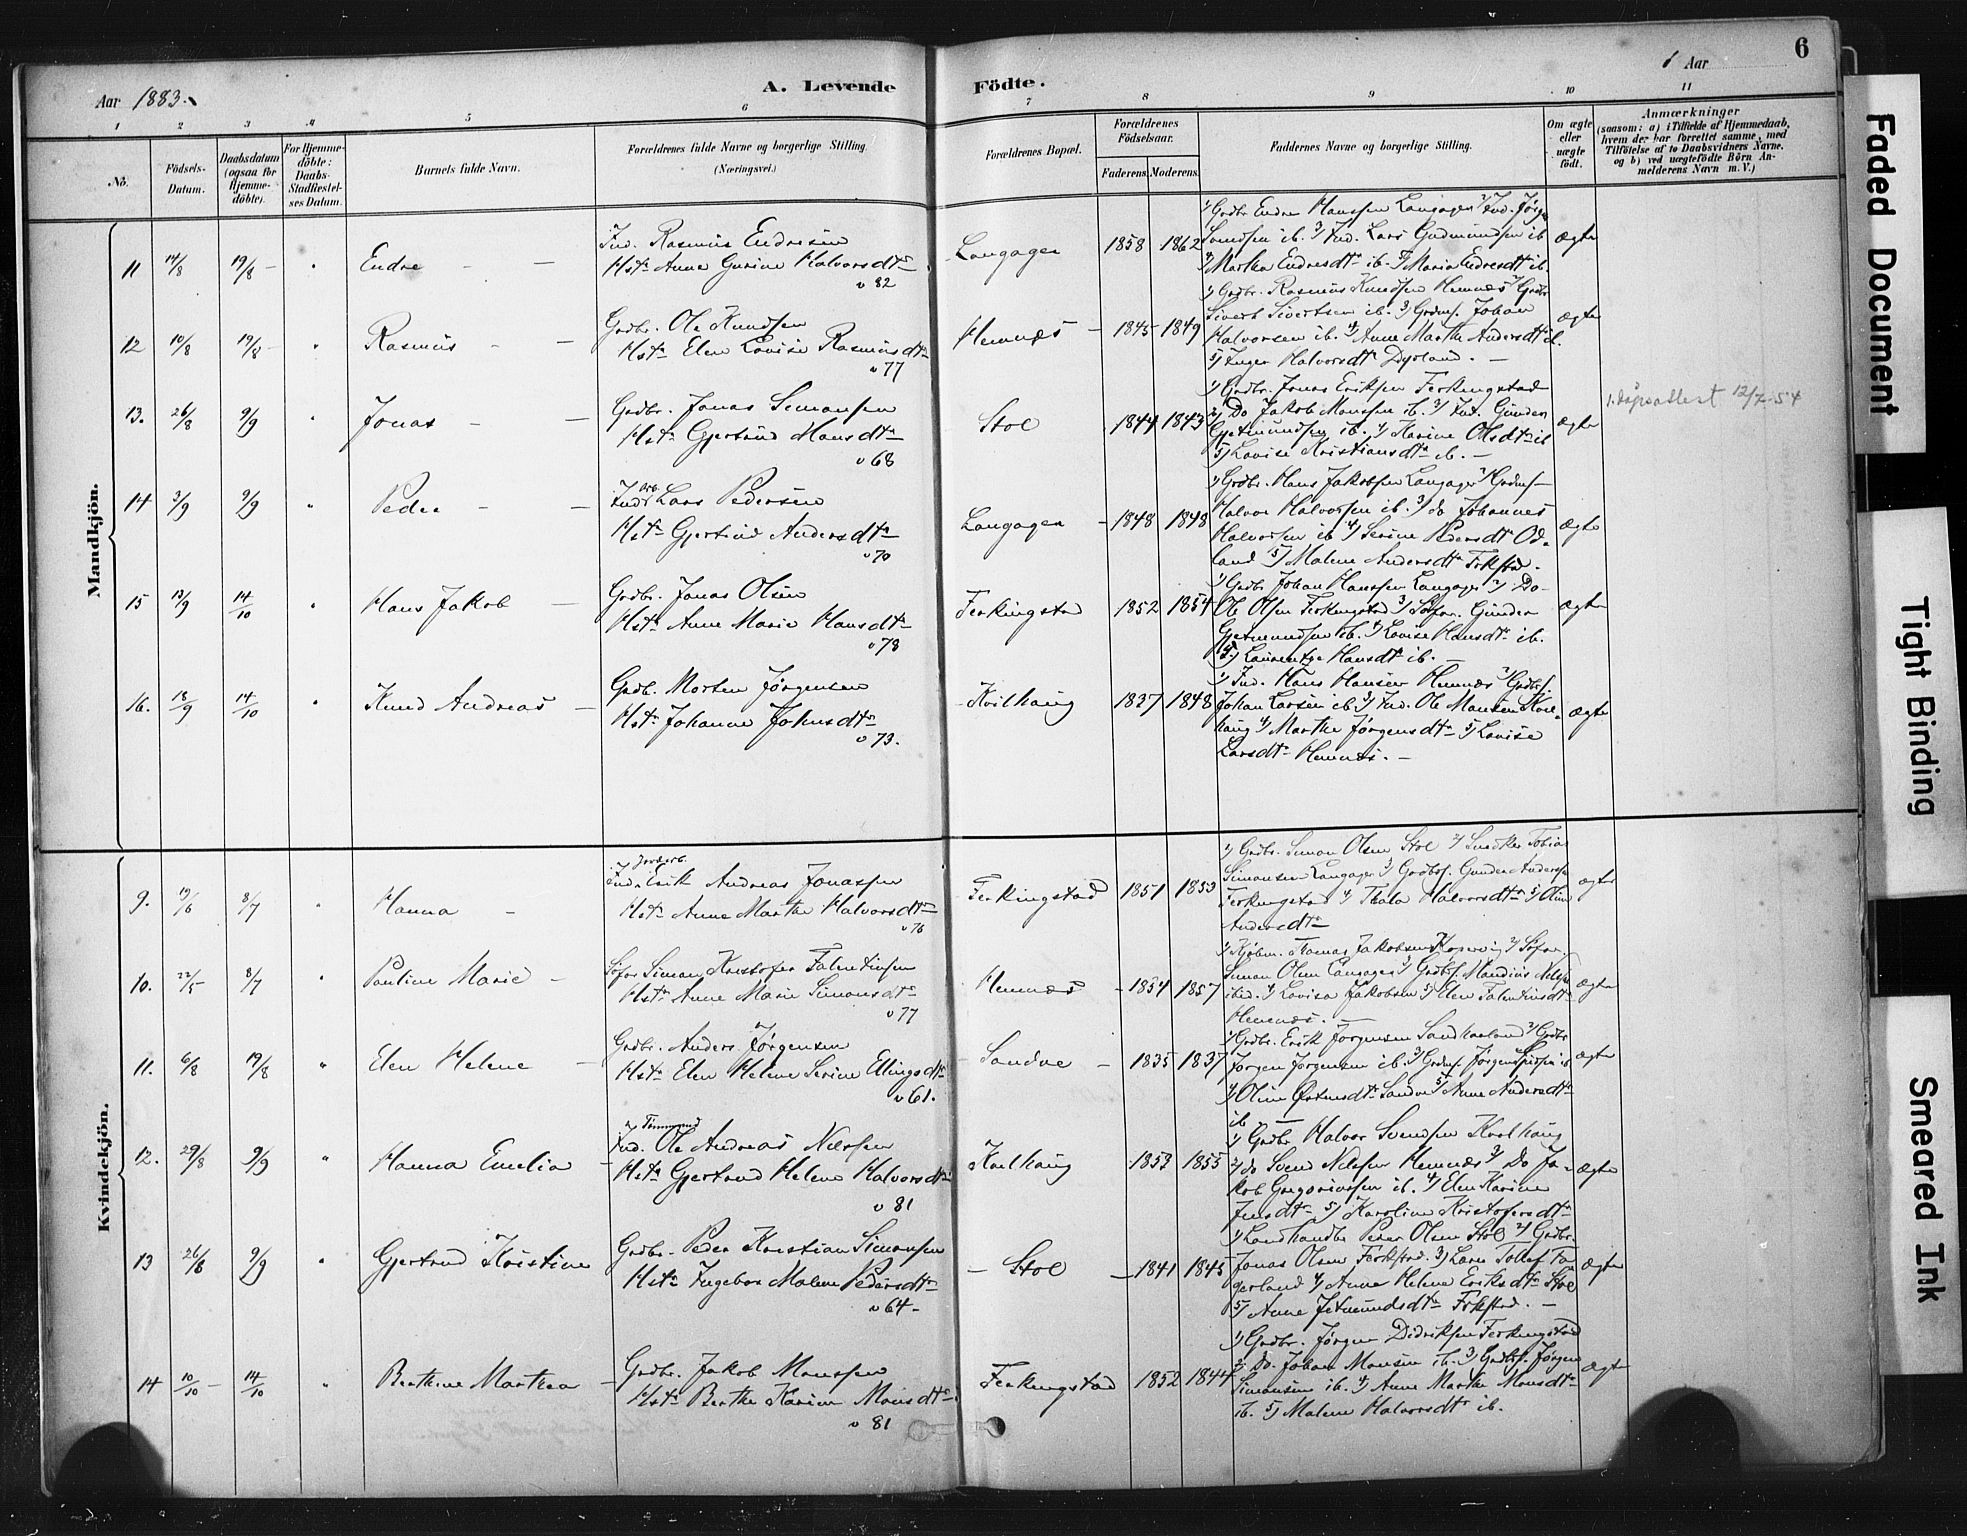 6
Aar 1883.
A. Levende Födte.
Aar
1 2 3 4 5 6 7 8 9 10 11
No.
Födsels-Datum.
Daabsdatum (ogsaa for Hjemme-döbte).
For Hjemme-döbte: Daabs-Stadfæstel-ses Datum.
Barnets fulde Navn.
Forældrenes fulde Navne og borgerlige Stilling.
(Næringsvei.)
Forældrenes Bopæl.
Forældrenes Födselsaar.
Faderens. Moderens.
Faddernes Navne og borgerlige Stilling.
Om ægte eller uægte födt.
Anmærkninger
(saasom: a) i Tilfælde af Hjemmedaab,
hvem der har forrettet samme, med
Tilföielse af to Daabsvidners Navne,
og b) ved uægtefödte Börn An-
melderens Navn m. V.)
Mandkjön.
11 14/8 19/8 - " Endre - -
Ind. Rasmus Endresen
Hst: Anne Gurine Halvorsdtr
v 82
Langager 1858 1862
1) Grdbr Endre Hanssen Langager 2) Ind. Jørgen
Svendsen ib. 3) Ind. Lars Gudmundsen ib
4) Martha Endresdtr ib. 5) Maria Endresdtr ib.
ægte
12 10/8 19/8 - " Rasmus - -
Grdbr. Ole Knudsen
Hstr Elen Lovise Rasmusdtr
v 77
Hemnæs - 1845 1849
1) Grdbr. Rasmus Knudsen Hemnæs 2) Grdbr
Sivert Sivertsen ib. 3) Grdmf. Johan
Halvorsen ib. 4) Anne Marthe Andersdtr ib.
5) Inger Halvorsdtr Dyrland. -
ægte
13. 26/8 9/9 " Jonas - -
Grdbr. Jonas Simonsen
Hstr Gjertrud Monsdtr
v 68
Stol - 1844 1843
1) Grdbr. Jonas Eriksen Ferkingstad
2) Do Jakob Monssen ib. 3) Ind. Gunder
Gjetmundsen ib. 4) Karine Olsdtr ib
5) Lovise Kristiansdtr ib. -
ægte
1. dåpsattest 12/7-54
14 3/9 9/9 " Peder - -
Ind. Lars Pedersen
Hstr Gjertrud Andersdtr
v 70
Langager - 1848 1848
1) Grdbr. Hans Jakobsen Langager 2) Grdmf
Halvor Halvorsen ib. 3) do Johannes
Halvorsen ib 4) Serine Pedersdtr Od-
land 5) Malene Andersdtr Frkstd.
ægte
15 13/9 14/10 " Hans Jakob -
Grdbr. Jonas Olsen
Hstr Anne Marie Hansdtr
v 78
Ferkingstad 1852 1854
1) Grdbr Johan Hanssen Langager 2) Do-
Ole Olsen Ferkingstad 3) Søfar. Gunder
Gjetmundsen ib. 4) Lovise Hansdtr ib.
5) Laurentze Hansdtr ib. -
ægte
16. 18/9 14/10 " Knud Andreas -
Grdb. Morten Jørgensen
Hstr Johanne Johnsdtr
v 73.
- Kvilhaug 1837 1848
1) Ind. Hans Hansen Hemnæs 2) Grdbrf.
Johan Larsen ib 3) Ind. Ole Monsen Kvil-
haug 4) Marthe Jørgensdtr 5) Lovise
Larsdtr Hemnæs. -
ægte
Kvindekjön.
9. 19/6 8/7 " Hanna -
Jordarb.
Ind. Erik Andreas Jonassen
Hstr Anne Marthe Halvorsdtr
v 76
Ferkingstad 1851 1853
1) Grdbr. Simon Olsen Stol 2) Snedker Tobias
Simonsen Langager 3) Grdbsf. Gunder Andersen
Ferkingstad 4) Thala Halvorsdtr 5) Oline
Andersdtr
ægte
10. 22/5 8/7 " Pauline Marie -
Søfar Simon Kristofer Falentinsen
Hstr Anne Marie Simonsdtr
v 77
Hemnæs - 1854 1857
1) Kjøbm. Thomas Jakobsen Kopervig 2) Søfar.
Simon Olsen Langager 3) Grdbsf. Mandius Nilsen
ibid. 4) Lovisa Jakobsen 5) Elen Falentinsdtr
Hemnæs. -
ægte
11. 6/8 19/8 " Elen Helene -
Grdbr. Anders Jørgensen
Hstr Elen Helene Serine Ellingsdtr
v 61.
- Sandve - 1835 1837
1) Grdbr. Erik Jørgensen Sandhaaland 2) Grdbr
Jørgen Jørgensen ib. 3) Grdmf. Jørgen ib
4) Oline Østensdtr Sandve 5) Anne Andersdtr
ib -
ægte
12. 29/8 9/9 " Hanna Emelia -
Tømmermd
Ind. Ole Andreas Nilssen
Hstr Gjertrud Helene Halvorsdtr
v 81
- Kvilhaug - 1853 1855
1) Grdbr Halvor Svendsen Kvilhaug
2) do Svend Nilssen Hemnæs 3) Do Ja-
kob Gregoriussen ib. 4) Elen Karine
Jensdtr 5) Karoline Kristofersdtr
ægte
13 26/8 9/9 " Gjertrud Kristine
Grdbr. Peder Kristian Simonsen
Hstr Ingebor Malene Pedersdtr
v 64 -
- Stol - 1841 1845
1) Landhandler Peder Olsen Stol 2) Grdbr.
Jonas Olsen Ferkstd. 3) Lars Tollef Fa-
gerland 4) Anne Helene Eriksdtr Stol
5) Anne Jetmundsdtr Frkstad. -
ægte
14 10/10 - 14/10 " Berthine Marthea -
Grdbr. Jakob Monssen
Hstr Berthe Karine Monsdtr
v 81
Ferkingstad 1852 1844
1) Grdbr. Jørgen Didriksen Ferkingstad
2) Do. Johan Monsen ib. 3) Grdbsf. Jørgen
Simonsen ib. 4) Anne Marthe Monsdtr
ib. 5) Malene Halvorsdtr ib.
ægte
Faded Document
Tight Binding
Smeared Ink